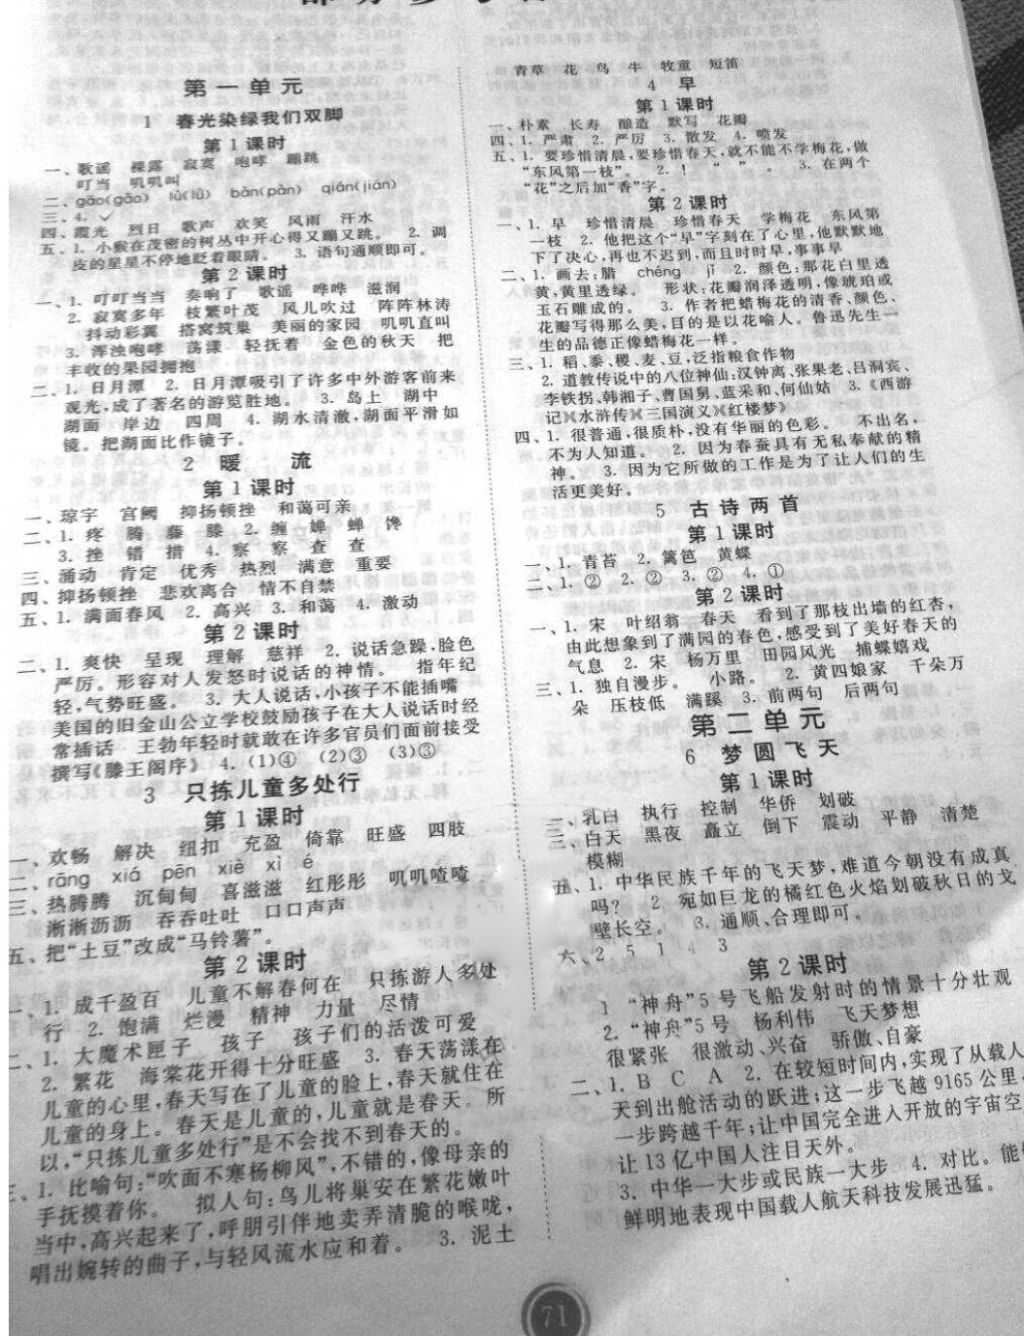 第一单元
1 春光染绿我们双脚
第1课时
一、歌谣 裸露 寂寞 咆哮 蹦跳
叮当 叽叽叫
二、gāo(gāo) lù(lǜ) bàn(pàn) qián(jiān)
三、4. ✓
四、霞光 烈日 歌声 欢笑 风雨 汗水
五、1. 小猴在茂密的树丛中开心得又蹦又跳。 2. 调
皮的星星不停地眨着眼睛。 3. 语句通顺即可。
第2课时
一、1. 叮叮当当 奏响了 歌谣 哗哗 滋润
2. 寂寞多年 枝繁叶茂 风儿吹过 阵阵林涛
抖动彩翼 搭窝筑巢 美丽的家园 叽叽直叫
3. 浑浊咆哮 荡漾 轻抚着 金色的秋天 把
丰收的果园拥抱
二、1. 日月潭 2. 日月潭吸引了许多中外游客前来
观光,成了著名的游览胜地。 3. 岛上 湖中
湖面 岸边 四周 4. 湖水清澈,湖面平滑如
镜。把湖面比作镜子。
2 暖 流
第1课时
一、琼宇 宫阙 抑扬顿挫 和蔼可亲
二、1. 疼 腾 藤 滕 2. 缠 婵 蝉 馋
3. 挫 错 措 4. 察 察 查 查
三、涌动 肯定 优秀 热烈 满意 重要
四、抑扬顿挫 悲欢离合 情不自禁
五、1. 满面春风 2. 高兴 3. 和蔼 4. 激动
第2课时
二、1. 爽快 呈现 理解 慈祥 2. 说话急躁,脸色
严厉。形容对人发怒时说话的神情。 指年纪
轻,气势旺盛。 3. 大人说话,小孩子不能插嘴
美国的旧金山公立学校鼓励孩子在大人说话时经
常插话 王勃年轻时就敢在许多官员们面前接受
撰写《滕王阁序》 4. (1)④ (2)③ (3)③
3 只拣儿童多处行
第1课时
一、欢畅 解决 纽扣 充盈 倚靠 旺盛 四肢
二、rāng xiá pēn xiè xì é
三、热腾腾 沉甸甸 喜滋滋 红彤彤 叽叽喳喳
淅淅沥沥 吞吞吐吐 口口声声
五、把“土豆”改成“马铃薯”。
第2课时
一、1. 成千盈百 儿童不解春何在 只拣游人多处
行 2. 饱满 烂漫 精神 力量 尽情
二、1. 大魔术匣子 孩子 孩子们的活泼可爱
2. 繁花 海棠花开得十分旺盛 3. 春天荡漾在
儿童的心里,春天写在了儿童的脸上,春天就住在
儿童的身上。春天是儿童的,儿童就是春天。所
以,“只拣儿童多处行”是不会找不到春天的。
三、1. 比喻句:“吹面不寒杨柳风”,不错的,像母亲的
手抚摸着你。 拟人句:鸟儿将巢安在繁花嫩叶
当中,高兴起来了,呼朋引伴地卖弄清脆的喉咙,
唱出婉转的曲子,与轻风流水应和着。 3. 泥土
青草 花 鸟 牛 牧童 短笛
4 早
第1课时
一、朴素 长寿 酿造 默写 花瓣
四、1. 严肃 2. 严厉 3. 散发 4. 喷发
五、1. 要珍惜清晨,要珍惜春天,就不能不学梅花,做
“东风第一枝”。 2. ! “ ” 。 3. 在两个
“花”之后加“香”字。
第2课时
一、1. 早 珍惜清晨 珍惜春天 学梅花 东风第
一枝 2. 他把这个“早”字刻在了心里,他默默地
下了决心,再也不迟到,而且时时早,事事早
二、1. 画去:腊 chéng jǐ 2. 颜色:那花白里透
黄,黄里透绿。 形状:花瓣润泽透明,像琥珀或
玉石雕成的。 3. 作者把蜡梅花的清香、颜色、
花瓣写得那么美,目的是以花喻人。鲁迅先生一
生的品德正像蜡梅花一样。
三、1. 稻、黍、稷、麦、豆,泛指粮食作物
2. 道教传说中的八位神仙:汉钟离、张果老、吕洞宾、
李铁拐、韩湘子、曹国舅、蓝采和、何仙姑 3.《西游
记》《水浒传》《三国演义》《红楼梦》
四、1. 很普通,很质朴,没有华丽的色彩。 不出名,
不为人知道。 2. 因为春蚕具有无私奉献的精
神。 3. 因为它所做的工作是为了让人们的生
活更美好。
5 古诗两首
第1课时
一、1. 青苔 2. 篱笆 黄蝶
二、1. ② 2. ② 3. ② 4. ①
第2课时
一、1. 宋 叶绍翁 春天 看到了那枝出墙的红杏,
由此想象到了满园的春色,感受到了美好春天的
气息 2. 宋 杨万里 田园风光 捕蝶嬉戏
三、1. 独自漫步。 小路。 2. 黄四娘家 千朵万
朵 压枝低 满蹊 3. 前两句 后两句
第二单元
6 梦圆飞天
第1课时
二、乳白 执行 控制 华侨 划破
三、白天 黑夜 矗立 倒下 震动 平静 清楚
模糊
五、1. 中华民族千年的飞天梦,难道今朝没有成真
吗? 2 宛如巨龙的橘红色火焰划破秋日的戈
壁长空。 3. 通顺、合理即可。
六、2 5 1 4 3
第2课时
1 “神舟”5号飞船发射时的情景十分壮观
2. “神舟”5号 杨利伟 飞天梦想
很紧张 很激动、兴奋 骄傲、自豪
二、1. B C A 2. 在较短时间内,实现了从载人
天到出舱活动的跃进;这一步飞越9165公里,
一步跨越千年;让中国完全进入开放的宇宙空
让13亿中国人注目天外。
3. 中华一大步或民族一大步 4. 对比。能
鲜明地表现中国载人航天科技发展迅猛。
71